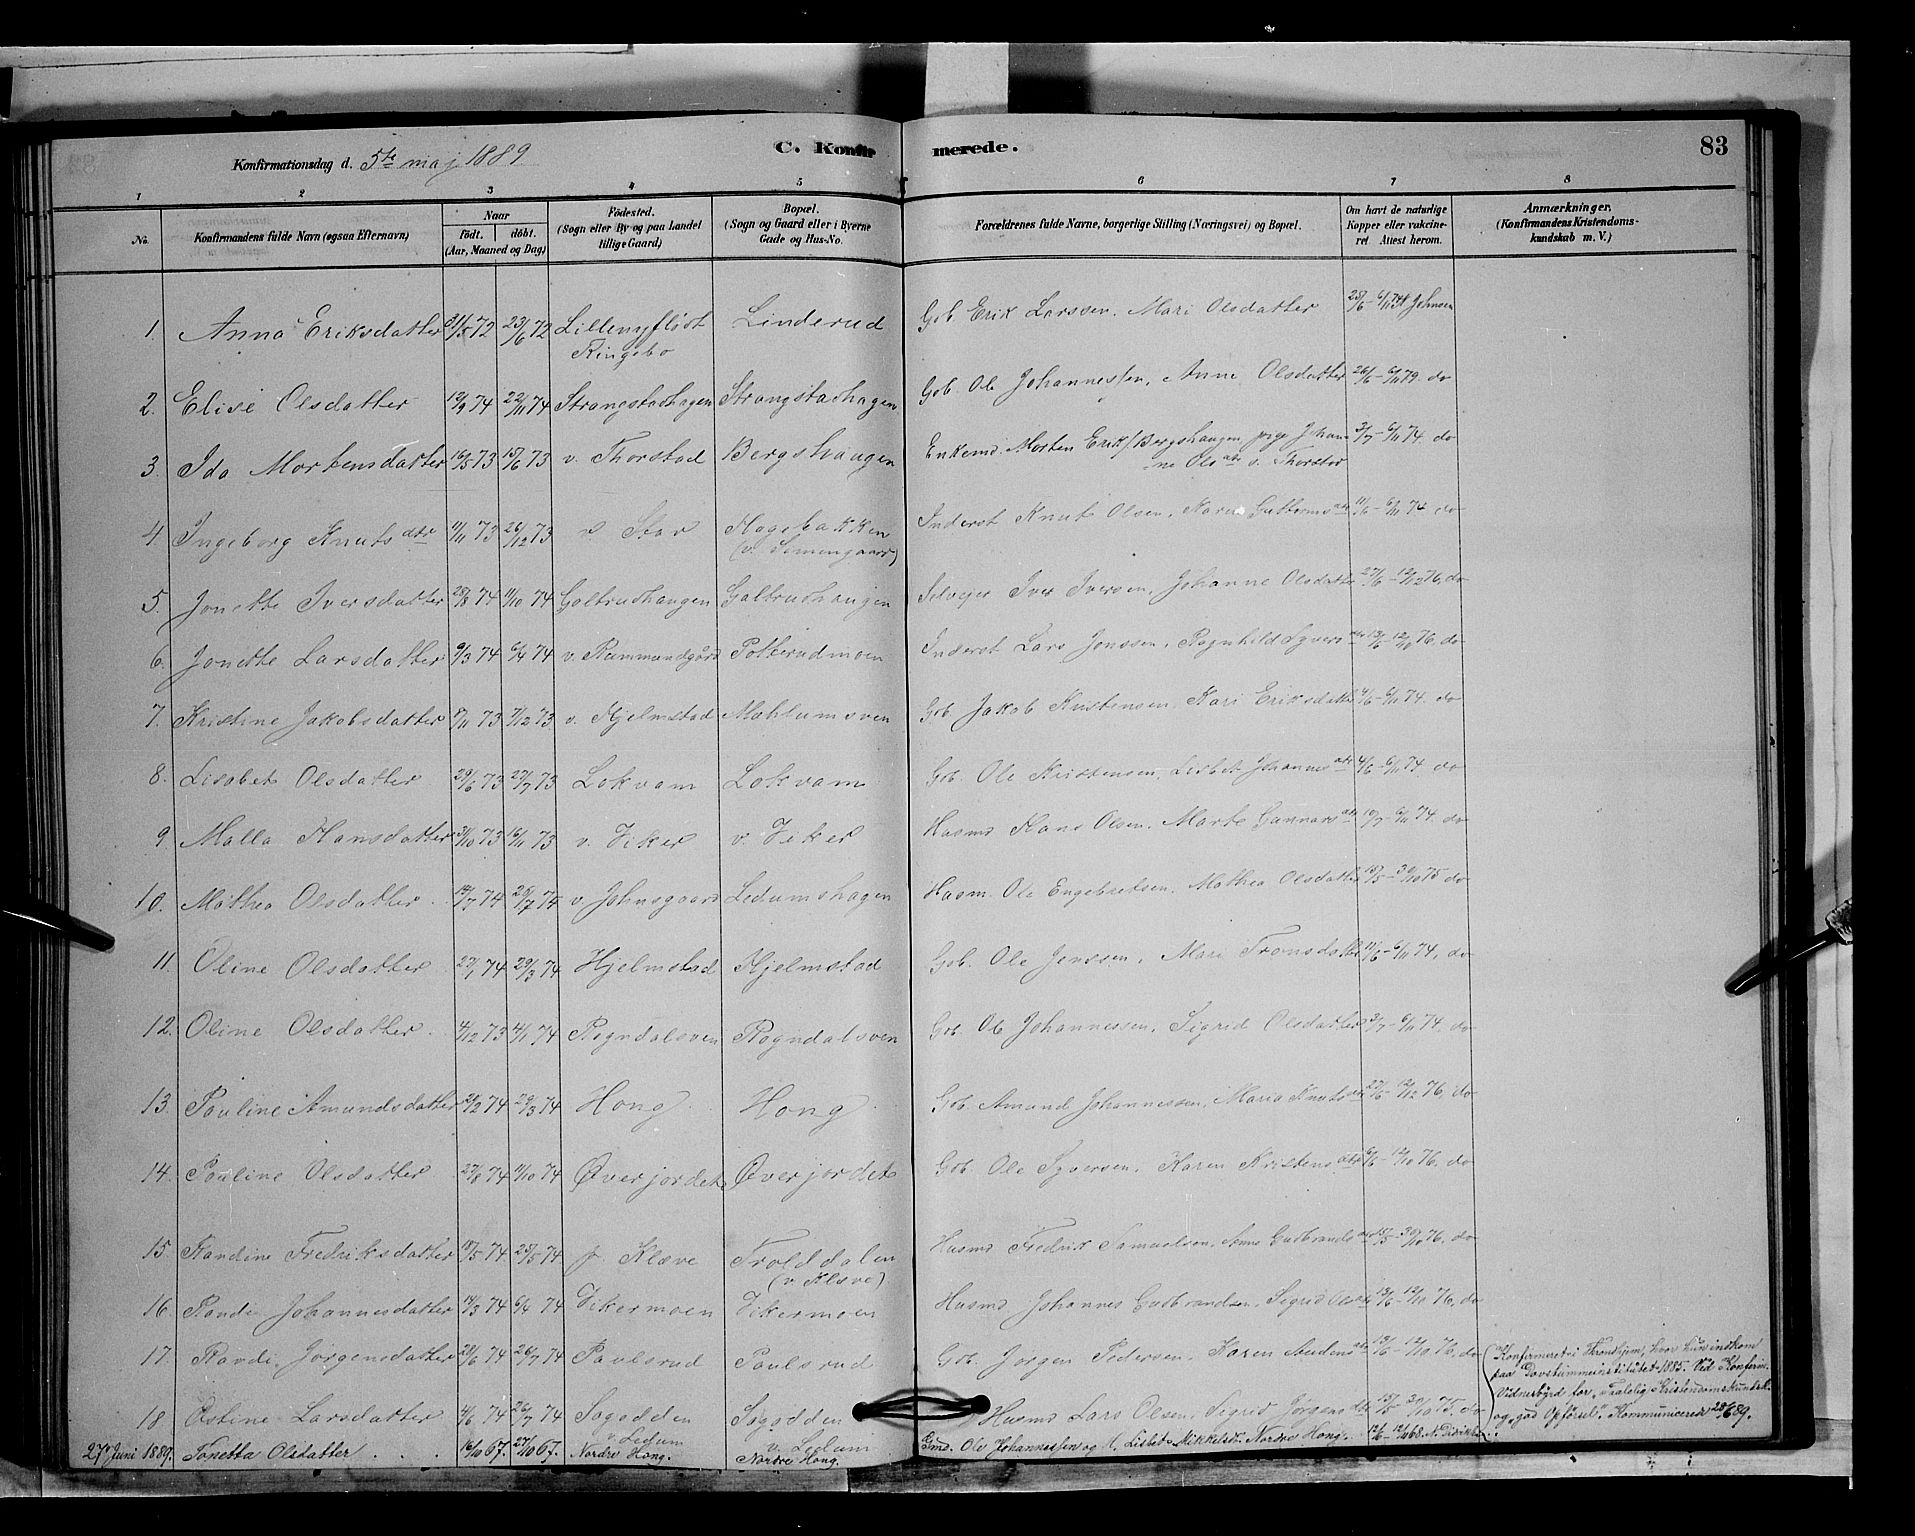 Konfirmationsdag d. 5te maj 1889
C. Konfirmerede.
83
1 2 3 4 5 6 7 8
No.
Konfirmandens fulde Navn (ogsaa Efternavn)
Naar
født. døbt.
(Aar, Maaned og Dag)
Fødested.
(Sogn eller By og paa Landet
tillige Gaard)
Bopæl.
(Sogn og Gaard eller i Byerne
Gade og Hus-No.
Forældrenes fulde Navne, borgerlige Stilling (Næringsvei) og Bopæl.
Om havt de naturlige
Kopper eller vakcine-
ret. Attest herom.
Anmærkninger.
(Konfirmandens Kristendoms-
kundskab m. V.)
1. Anna Eriksdatter 31/5 72 23/6 72 Lillenyflødt Linderud Gbb Erik Larssen. Mari Olsdatter 25/6 - 6/11 74 Johnsen
Ringebo
2. Elise Olsdatter 12/9 74 22/11 74 Strangstadhagen Strangstadhagen Gbb. Ole Johannessen, Anne Olsdatter 26/6 - 6/11 79. do
3. Ida Mortensdatter 16/5 73 15/6 73 v. Thorstad Bergshaugen Enkemd. Morten Erik/ Bergshaugen, pige Johan- 3/7 - 6/11 74. do
ne Olsdtr v. Thorstad
4. Ingeborg Knutsdtr 11/11 73 26/12 73 v. Stav Hagebakken Inderst Knut Olsen, Karen Guttormsdtr 11/6 - 6/11 74 do
(v. Simengaard)
5. Jonette Iversdatter 28/8 74 11/10 74 Galtrudhaugen Galtrudhaugen Selvejer Iver Iversen, Johanne Olsdatter 27/6 - 12/12 76. do
6. Jonette Larsdatter 9/3 74 6/4 74 v. Rammundgård Potterudmoen Inderst Lars Jonssen, Ragnhild Syversdtr 13/6 - 12/10 76. do
7. Kristine Jakobsdatter 8/11 73 7/12 73 v. Hjelmstad Mæhlumsven Gbb. Jakob Kristensen, Kari Eriksdatter 4/6 - 6/11 74. do
8. Lisabet Olsdatter 29/6 73 27/7 73 Lokvam Lokvam Gbb. Ole Kristensen, Lisbet Johannesdtr 4/6 - 6/11 74. do
9. Malla Hansdatter 31/10 73 16/11 73 v. Viker v. Viker Husmd Hans Olsen, Marte Gunnarsdtr 10/7 - 6/11 74. do
10. Mathea Olsdatter 14/7 74 26/7 74 v. Johnsgaard Ledumshagen Husm. Ole Engebretsen, Mathea Olsdatter 15/5 - 30/10 75 do
11. Oline Olsdatter 27/1 74 29/3 74 Hjelmstad Hjelmstad Gbb. Ole Jenssen, Mari Tronsdatter 11/6 - 6/11 74. do
12. Oline Olsdatter 4/12 73 4/1 74 Rogndalsven Rogndalsven Gbb. Ole Johannessen, Sigrid Olsdatter 3/7 - 6/11 74. do
13. Pauline Amundsdatter 21/2 74 29/3 74 Hong Hong Gbb. Amund Johannessen, Maria Knutsdtr 27/6 - 12/12 76, do
14. Pauline Olsdatter 27/8 74 11/10 74 Øverjordet Øverjordet Gbb. Ole Syversen, Karen Kristensdtr 6/6 - 12/10 76, do
15. Randine Fredriksdatter 10/5 74 25/5 74 p. Kleve Trolddalen Husmd Fredrik Samuelsen, Anne Gudbrandsdtr 15/5 - 30/10 76, do
(v. Kleve)
16. Randi Johannesdatter 14/3 74 6/4 74 Vikermoen Vikermoen Husmd Johannes Gudbrandsen, Sigrid Olsdtr 13/6 - 12/10 76, do
17. Randi Jørgensdatter 28/6 74 26/7 74 Paulsrud Paulsrud Gbb. Jørgen Pedersen, Karen 13/6 - 12/10 76. do
18. Østine Larsdatter 4/6 74 26/7 74 Sagodden Sagodden Husmd Lars Olsen, Sigrid Jørgensdtr 15/5 - 30/10 75. do
v. Ledum v. Ledum
27de Juni 1889. Tonetta Olsdatter 16/10 67. 27/10 67. Nordre Hong. Nordre Hong. Gmd. Ole Johannessen og H. Lisbet Mikkelsd. Nordre Hong. 12/6 - 12/11 68. N. Didriksen
Konfirmeret i Trondhjem, hvor hun indkom
paa Døvstummeinstitutet 1885. Ved Konfirm.
Vidnesbyrd for „Taalelig“ Kristendomskundsk.
og „god Opførsel“. Kommuniceret 28/6 89.